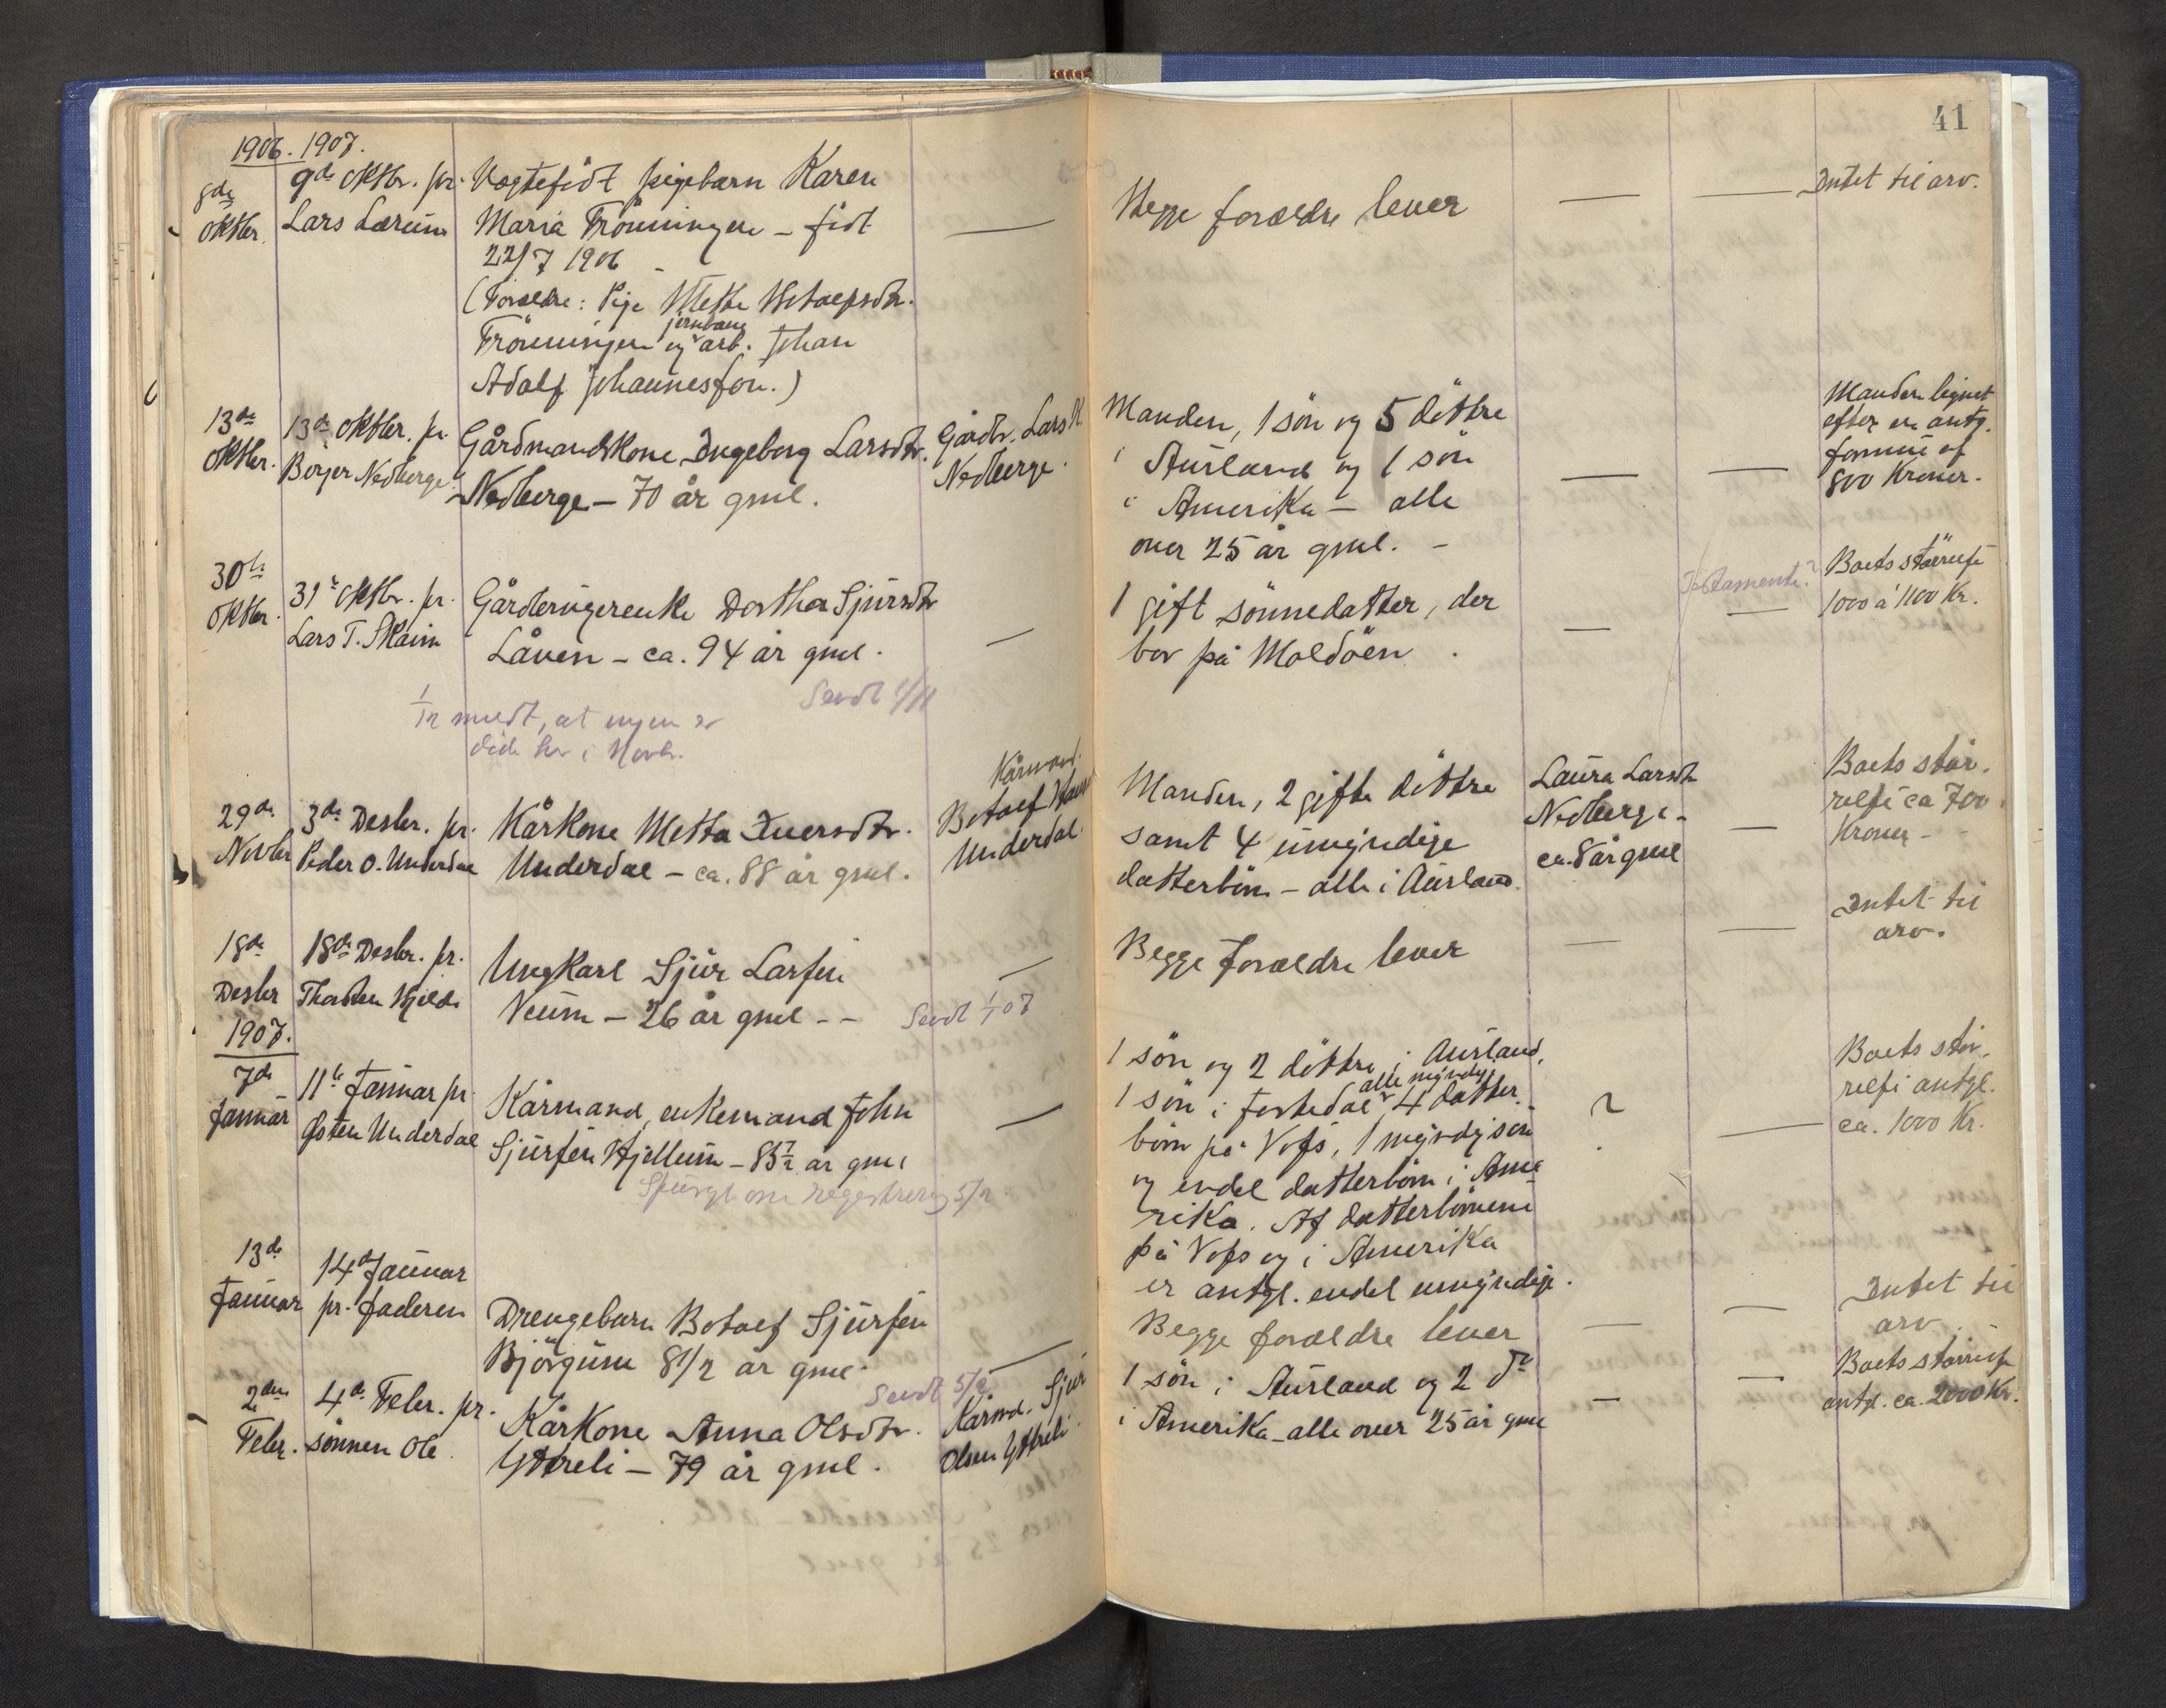 41
1906. 1907.
8de
Oktbr.
9de Oktbr. pr.
Lars Lærum
Uægtefödt pigebarn Karen
Maria Frönningen – född
22/7 1906 –
(Forældre: Pige Mette Botolfsdtr.
Frönningen og jernbane
arb. Johan
Adolf Johannesson.)
—
Begge forældre lever
—
—
Intet til arv.
13de
Oktbr.
13de Oktbr. pr.
Börjer Nedberge.
Gårdmandskone Ingeborg Larsdtr.
Nedberge – 70 år gml.
Gårdbr. Lars
Nedberge.
Manden, 1 sön og 5 döttre
i Aurland og 1 sön
i Amerika – alle
over 25 år gml. –
—
—
Manden lignet
efter en antg.
formue af
800 Kroner.
30te
Oktbr.
31te Oktbr. pr.
Lars T. Skaim
Gårdbrugerenke Dorthea Sjursdtr
Låven – ca. 94 år gml.
Sendt 1/11
—
1 gift sönnedatter, der
bor på Moldöen.
—
Testamente?
—
Boets störrelse
1000 à 1100 Kr.
1/12 meldt, at ingen er
döde her i Novbr.
29de
Novbr
3de Desbr. pr.
Peder O. Underdal
Kårkone Metta Iversdtr.
Underdal – ca. 88 år gml.
Kårmand.
Botolf
Underdal.
Manden, 2 gifte döttre
samt 4 umyndige
datterbörn – alle i Aurland.
Laura Larsdtr
Nedberge –
ca. 8 år gml
—
Boets stör-
relse ca 700
Kroner –
18de
Desbr
18de Desbr. pr.
Thorsten Hjelde
Ungkarl Sjur Larsen
Veum – 26 år gml – –
Sendt 1/1 07
—
Begge forældre lever
—
—
Intet til
arv.
1907.
7de
Januar
11te Januar pr.
Östen Underdal
Kårmand, enkemand John
Sjursen Hjellum – 85 1/2 år gml
Spurgt om registrering 5/2
—
1 sön og 2 döttre i Aurland,
1 sön i Jostedal alle myndig, 4 datter-
börn på Voss, 1 myndig sön
og endel datterbörn i Ame-
rika. Af datterbörnene
på Voss og i Amerika
er antgl. endel umyndige.
?
—
Boets stör-
relse antgl.
ca. 1000 Kr.
13de
Januar
14de Januar
pr. faderen
Drengebarn Botolf Sjursen
Björgum 8 1/2 år gml.
Sendt 5/2
—
Begge forældre lever
—
—
Intet til
arv.
2den
Febr.
4de Febr. pr.
sönnen Ole
Kårkone Anna Olsdtr.
Yttreli – 79 år gml.
Kårmd. Sjur
Olsen Yttreli.
1 sön i Aurland og 2 do
i Amerika – alle over 25 år gml
—
—
Boets störrelse
antgl. ca. 2000 Kr.